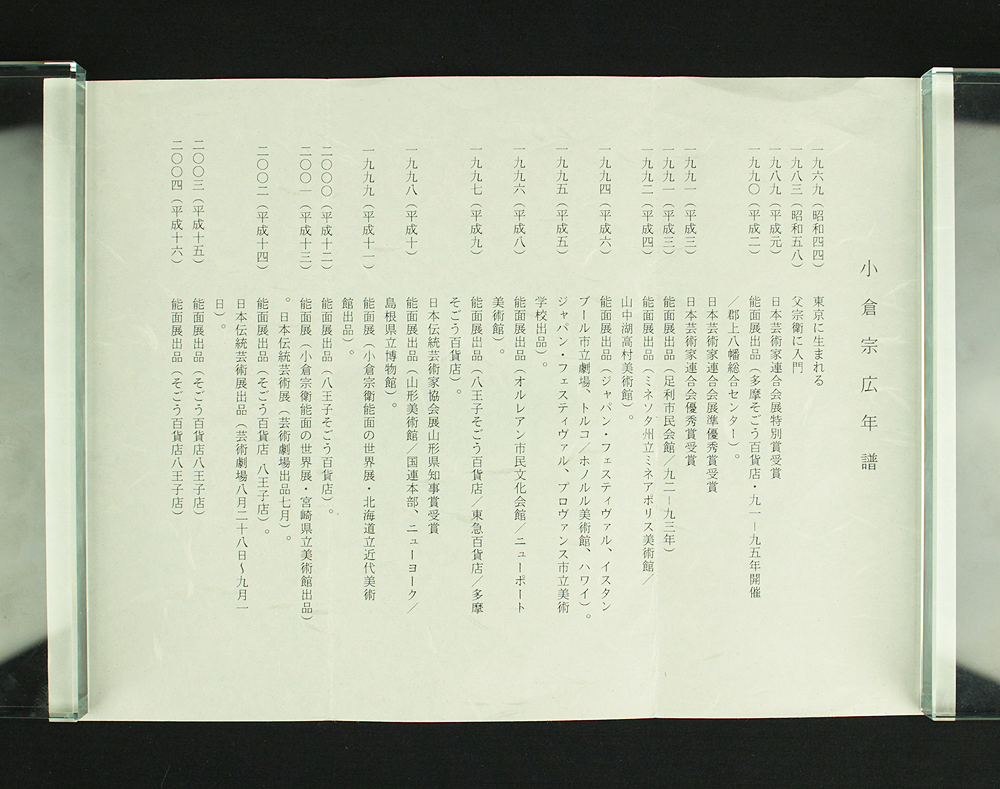 小倉宗広年譜
一九六九（昭和四四） 東京に生まれる
一九八三（昭和五八） 父宗衛に入門
一九八九（平成元） 日本芸術家連合会展特別賞受賞
一九九〇（平成二） 能面展出品（多摩そごう百貨店・九一－九五年開催
／郡上八幡総合センター）。
日本芸術家連合会展準優秀賞受賞
一九九一（平成三） 日本芸術家連合会優秀賞受賞
一九九一（平成三） 能面展出品（足利市民会館／九二－九三年）
一九九二（平成四） 能面展出品（ミネソタ州立ミネアポリス美術館／
山中湖高村美術館）。
一九九四（平成六） 能面展出品（ジャパン・フェスティヴァル、イスタン
ブール市立劇場、トルコ／ホノルル美術館、ハワイ）。
一九九五（平成五） ジャパン・フェスティヴァル、プロヴァンス市立美術
学校出品）。
一九九六（平成八） 能面展出品（オルレアン市民文化会館／ニューポート
美術館）。
一九九七（平成九） 能面展出品（八王子そごう百貨店／東急百貨店／多摩
そごう百貨店）。
日本伝統芸術家協会展山形県知事賞受賞
一九九八（平成十） 能面展出品（山形美術館／国連本部、ニューヨーク／
島根県立博物館）。
一九九九（平成十一） 能面展（小倉宗衛能面の世界展・北海道立近代美術
館出品）。
二〇〇〇（平成十二） 能面展出品（八王子そごう百貨店）。
二〇〇一（平成十三） 能面展（小倉宗衛能面の世界展・宮崎県立美術館出品）
。日本伝統芸術展（芸術劇場出品七月）。
二〇〇二（平成十四） 能面展出品（そごう百貨店 八王子店）。
日本伝統芸術展出品（芸術劇場八月二十八日～九月一
日）。
二〇〇三（平成十五） 能面展出品（そごう百貨店八王子店）
二〇〇四（平成十六） 能面展出品（そごう百貨店八王子店）